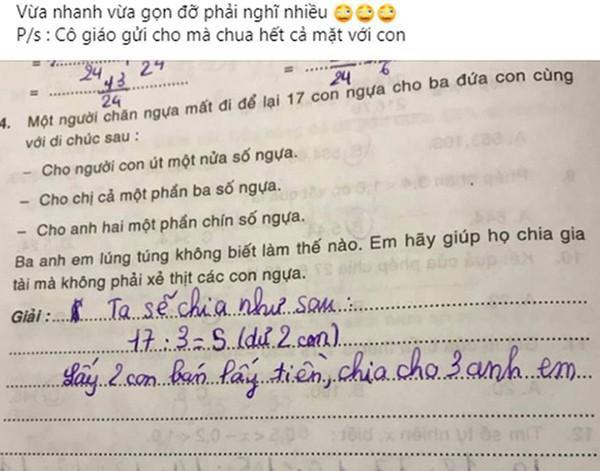 Vừa nhanh vừa gọn đỡ phải nghĩ nhiều
P/s : Cô giáo gửi cho mà chua hết cả mặt với con
24 24
= 43 =
24 24 6
4. Một người chăn ngựa mất đi để lại 17 con ngựa cho ba đứa con cùng
với di chúc sau :
– Cho người con út một nửa số ngựa.
– Cho chị cả một phần ba số ngựa.
– Cho anh hai một phần chín số ngựa.
Ba anh em lúng túng không biết làm thế nào. Em hãy giúp họ chia gia
tài mà không phải xẻ thịt các con ngựa.
Giải : Ta sẽ chia như sau :
17 : 3 = 5 (dư 2 con)
Lấy 2 con bán lấy tiền, chia cho 3 anh em